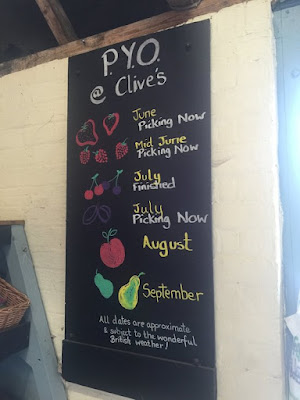 P.Y.O.
@ Clive's
June
Picking Now
Mid June
Picking Now
July
Finished
July
Picking Now
August
September
All dates are approximate
& subject to the wonderful
British weather!